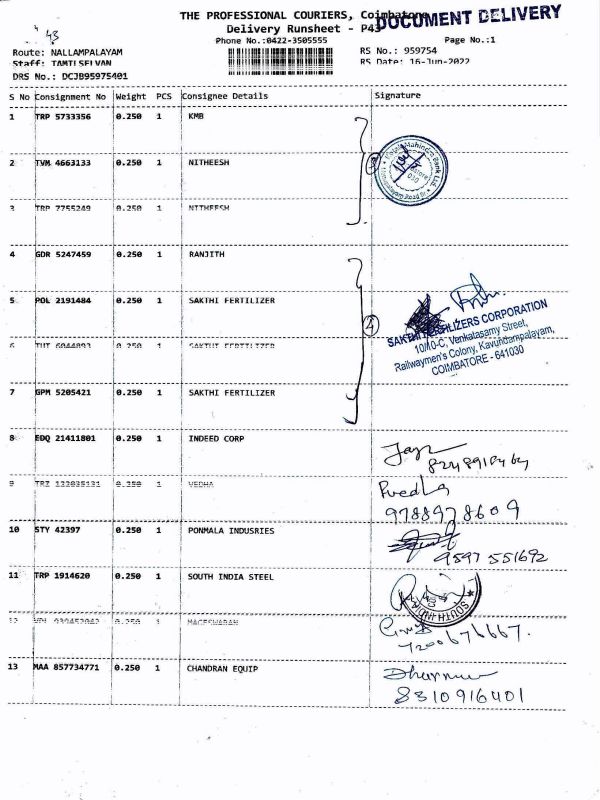 43
THE PROFESSIONAL COURIERS, Coimbatore
DOCUMENT DELIVERY
Delivery Runsheet - P43
Phone No.:0422-3505555 Page No.:1
Route: NALLAMPALAYAM RS No.: 959754
Staff: TAMILSELVAN RS Date: 16-Jun-2022
DRS No.: DCJB95975401
S No Consignment No Weight PCS Consignee Details Signature
1 TRP 5733356 0.250 1 KMB
2 TVM 4663133 0.250 1 NITHEESH
3 TRP 7755249 0.250 1 NITHEESH
3
Mahindra Bank Ltd.
4 GDR 5247459 0.250 1 RANJITH
5 POL 2191484 0.250 1 SAKTHI FERTILIZER
4
SAKTHI FERTILIZERS CORPORATION
10/10-C, Venkatasamy Street,
Railwaymen's Colony, Kavundampalayam,
COIMBATORE - 641030
6 0.250 1 SAKTHI FERTILIZER
7 GPM 5205421 0.250 1 SAKTHI FERTILIZER
8 EDQ 21411801 0.250 1 INDEED CORP
9 0.250 1 VEDHA
9788978609
10 STY 42397 0.250 1 PONMALA INDUSRIES
9597551692
11 TRP 1914620 0.250 1 SOUTH INDIA STEEL
SOUTH INDIA
12 0.250 1 MAGESWARAN
7200676667.
13 MAA 857734771 0.250 1 CHANDRAN EQUIP
8310916401